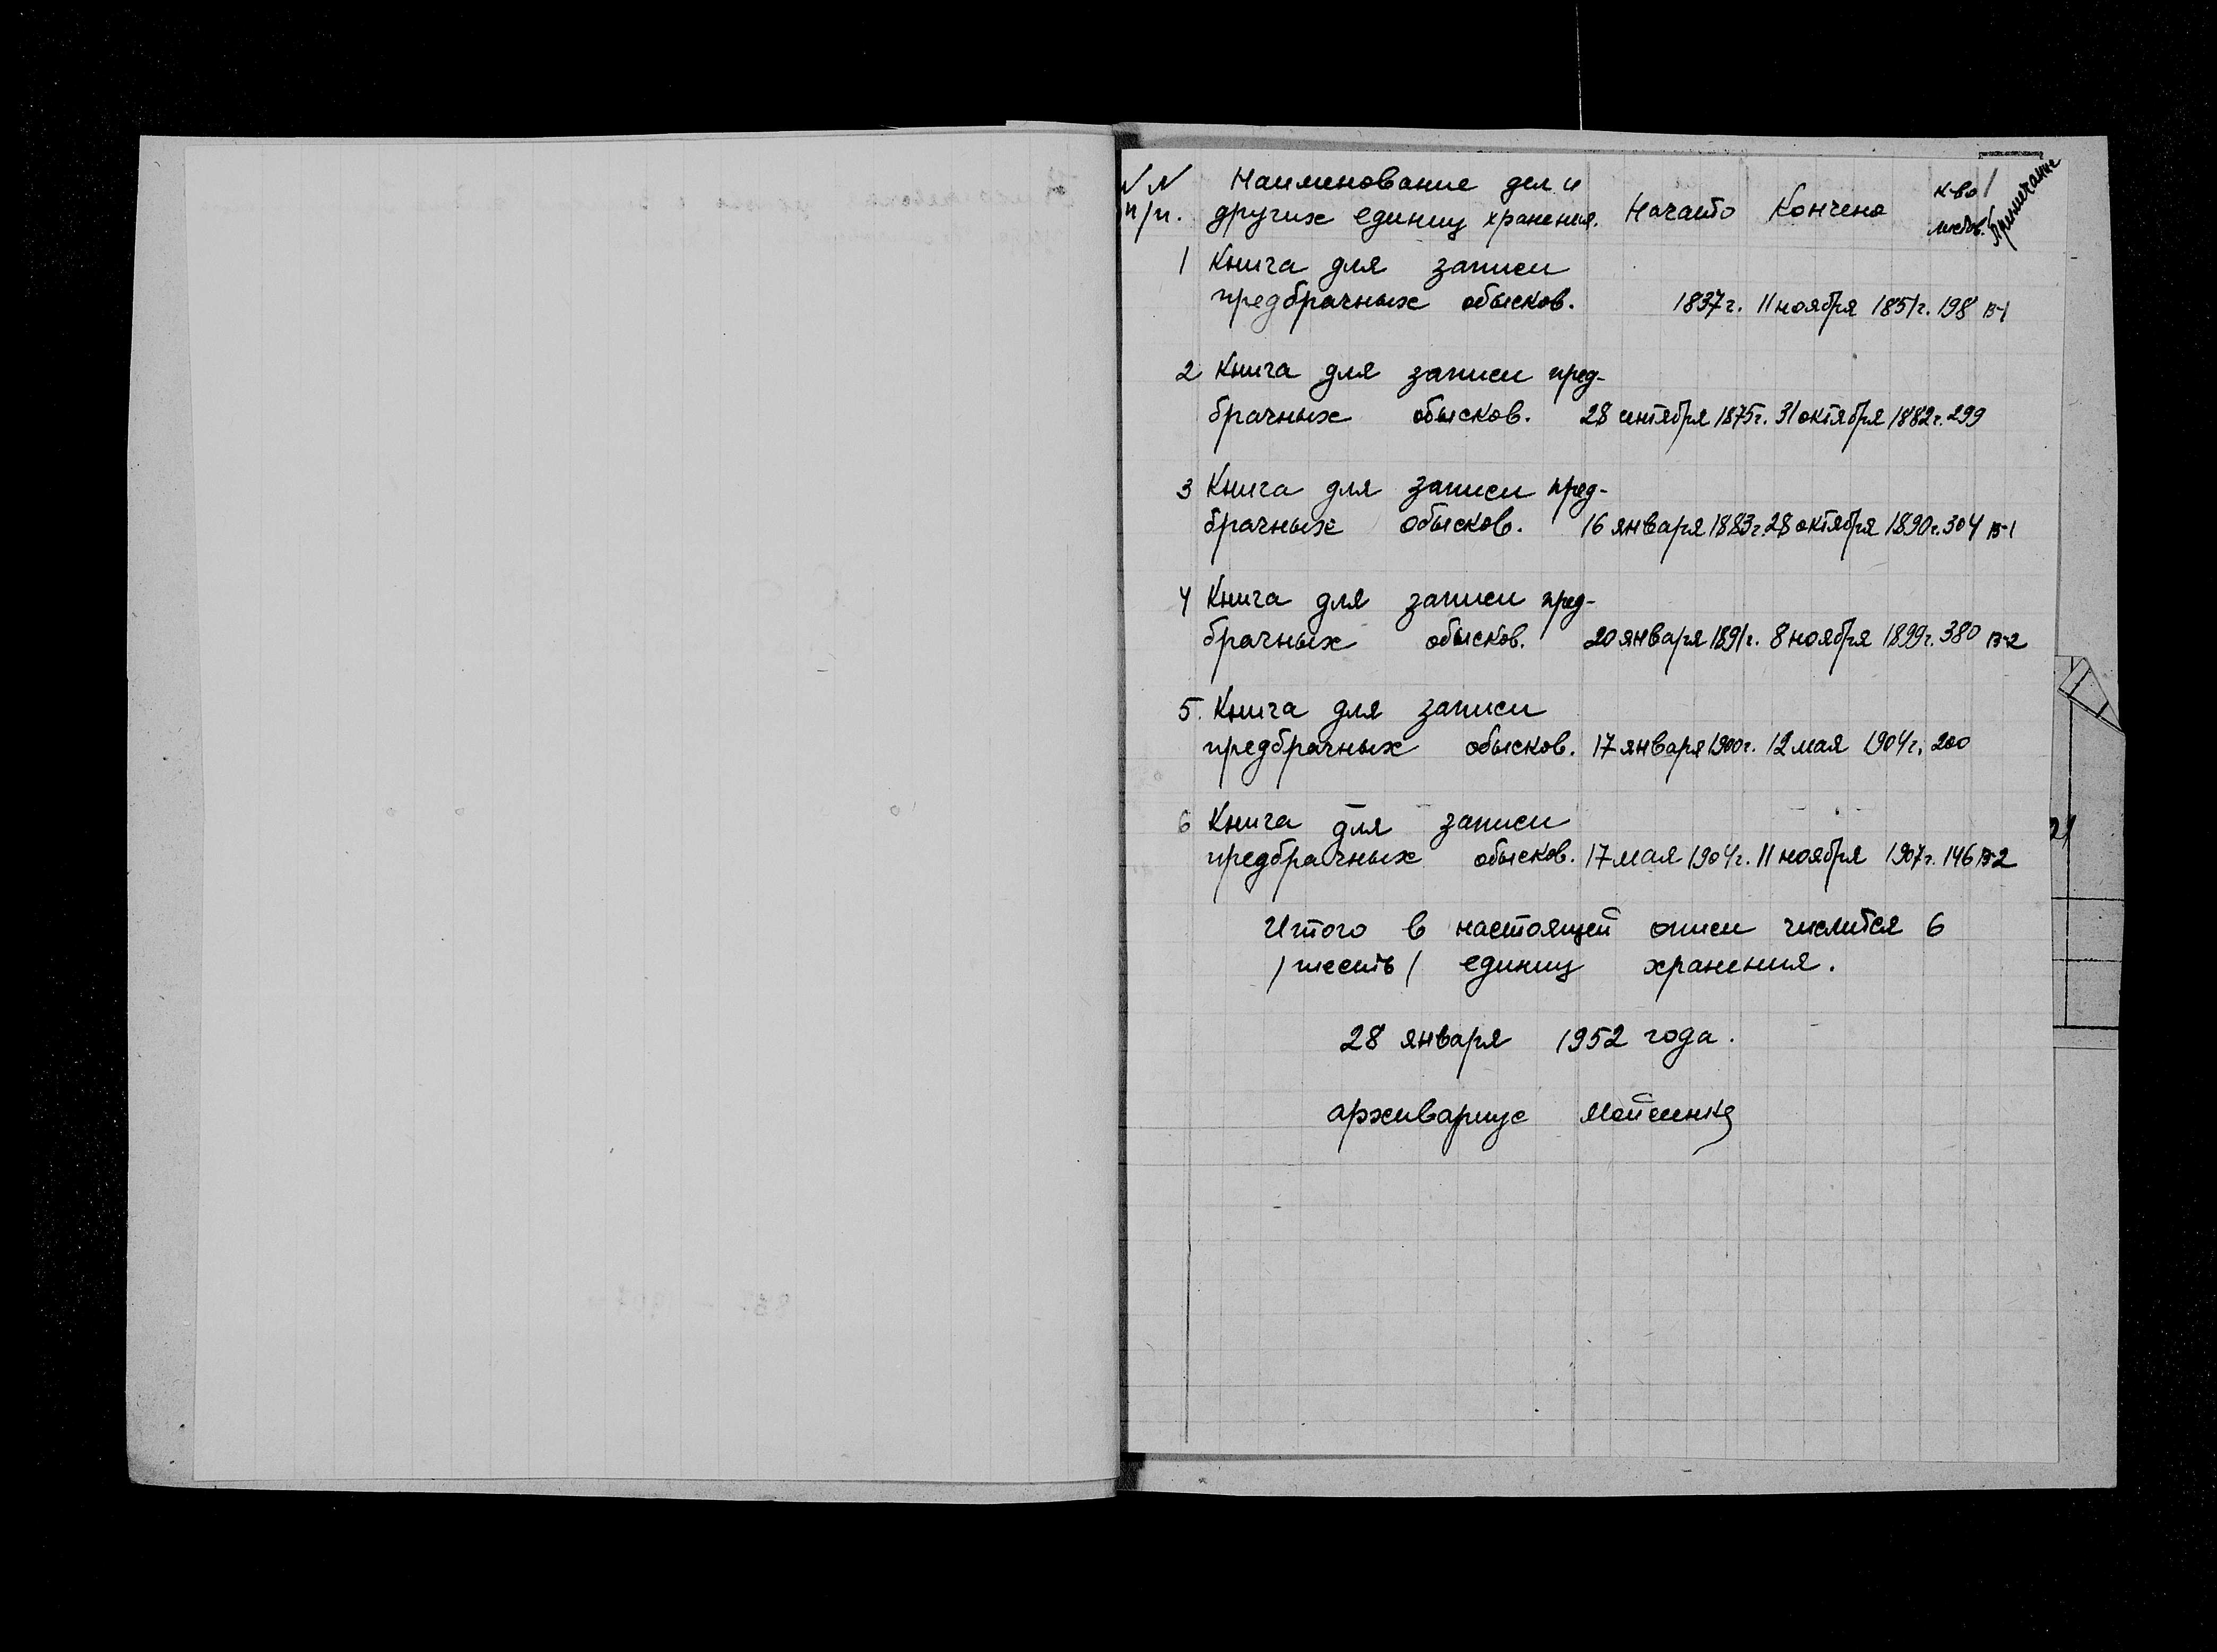 NN Наименование дел и
п/п. других единиц хранения. Начато Кончено к-во листов. Примечание
1 Книга для записи
предбрачных обысков. 1837г. 11 ноября 1851г. 198 В-1
2 Книга для записи пред-
брачных обысков. 28 сентября 1875г. 31 октября 1882г. 299
3 Книга для записи пред-
брачных обысков. 16 января 1883г. 28 октября 1890г. 304 В-1
4 Книга для записи пред-
брачных обысков. 20 января 1891г. 8 ноября 1899г. 380 В-2
5. Книга для записи
предбрачных обысков. 17 января 1900г. 12 мая 1904г. 200
6 Книга для записи
предбрачных обысков. 17 мая 1904г. 11 ноября 1907г. 146 В-2
Итого в настоящей описи числится 6
/шесть/ единиц хранения.
28 января 1952 года.
архивариус